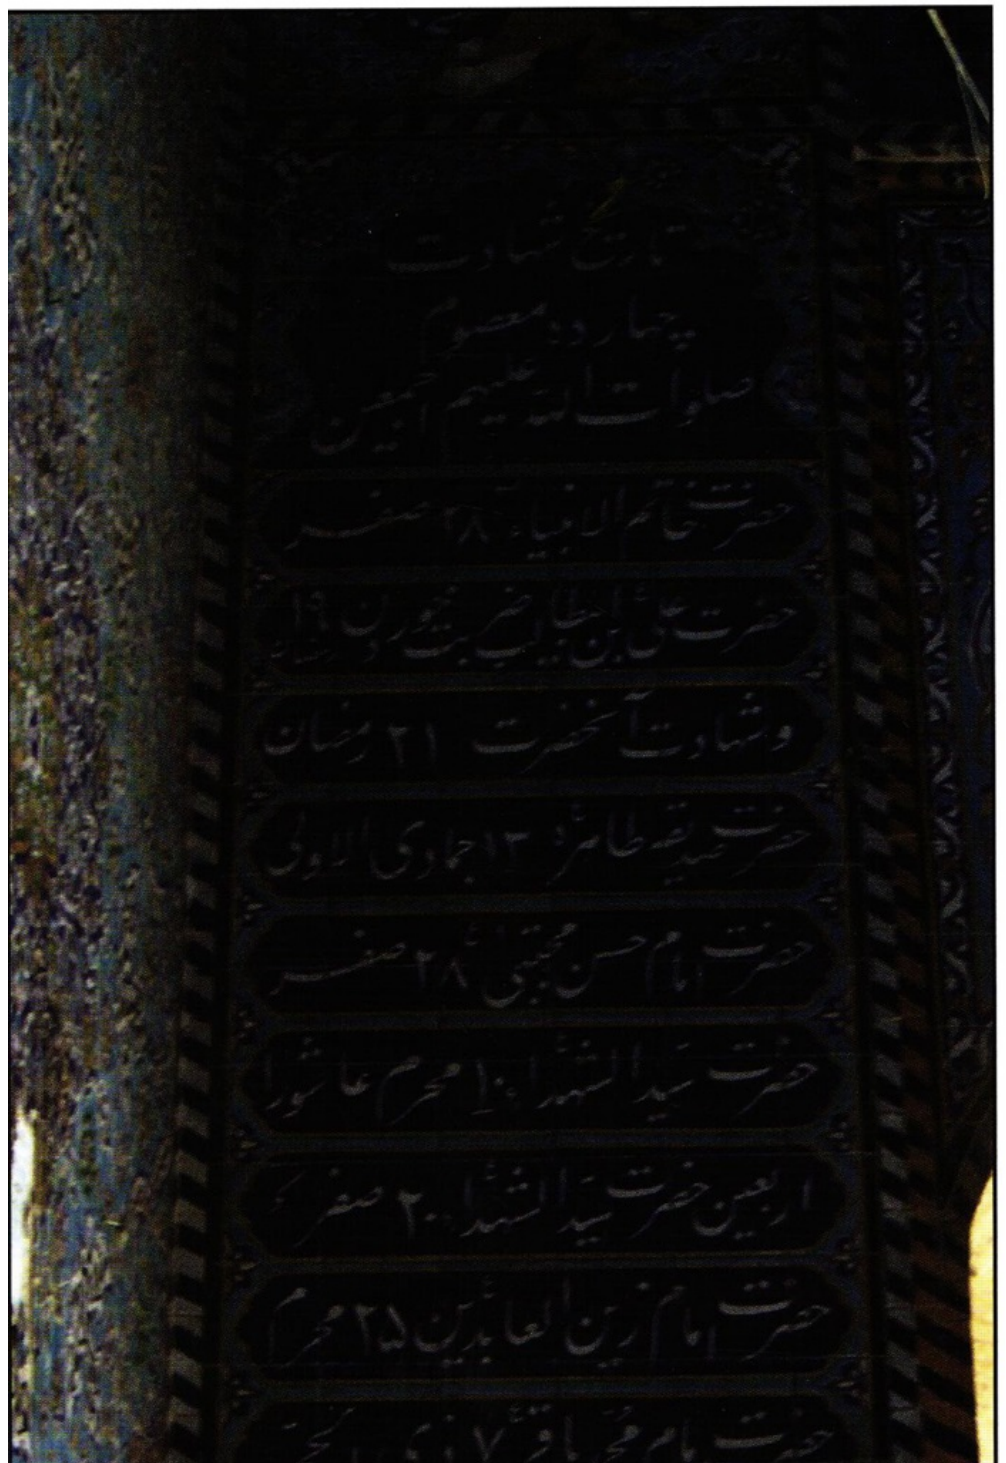 تاریخ شهادت
چهارده معصوم
صلوات الله علیهم اجمعین
حضرت خاتم الانبیاء ۲۸ صفر
حضرت علی بن ابیطالب ضربت خوردن ۱۹ رمضان
و شهادت آنحضرت ۲۱ رمضان
حضرت صدیقه طاهره ۱۳ جمادی الاولی
حضرت امام حسن مجتبی ۲۸ صفر
حضرت سید الشهدا ۱۰ محرم عاشورا
اربعین حضرت سید الشهدا ۲۰ صفر
حضرت امام زین العابدین ۲۵ محرم
حضرت امام محمد باقر ۷